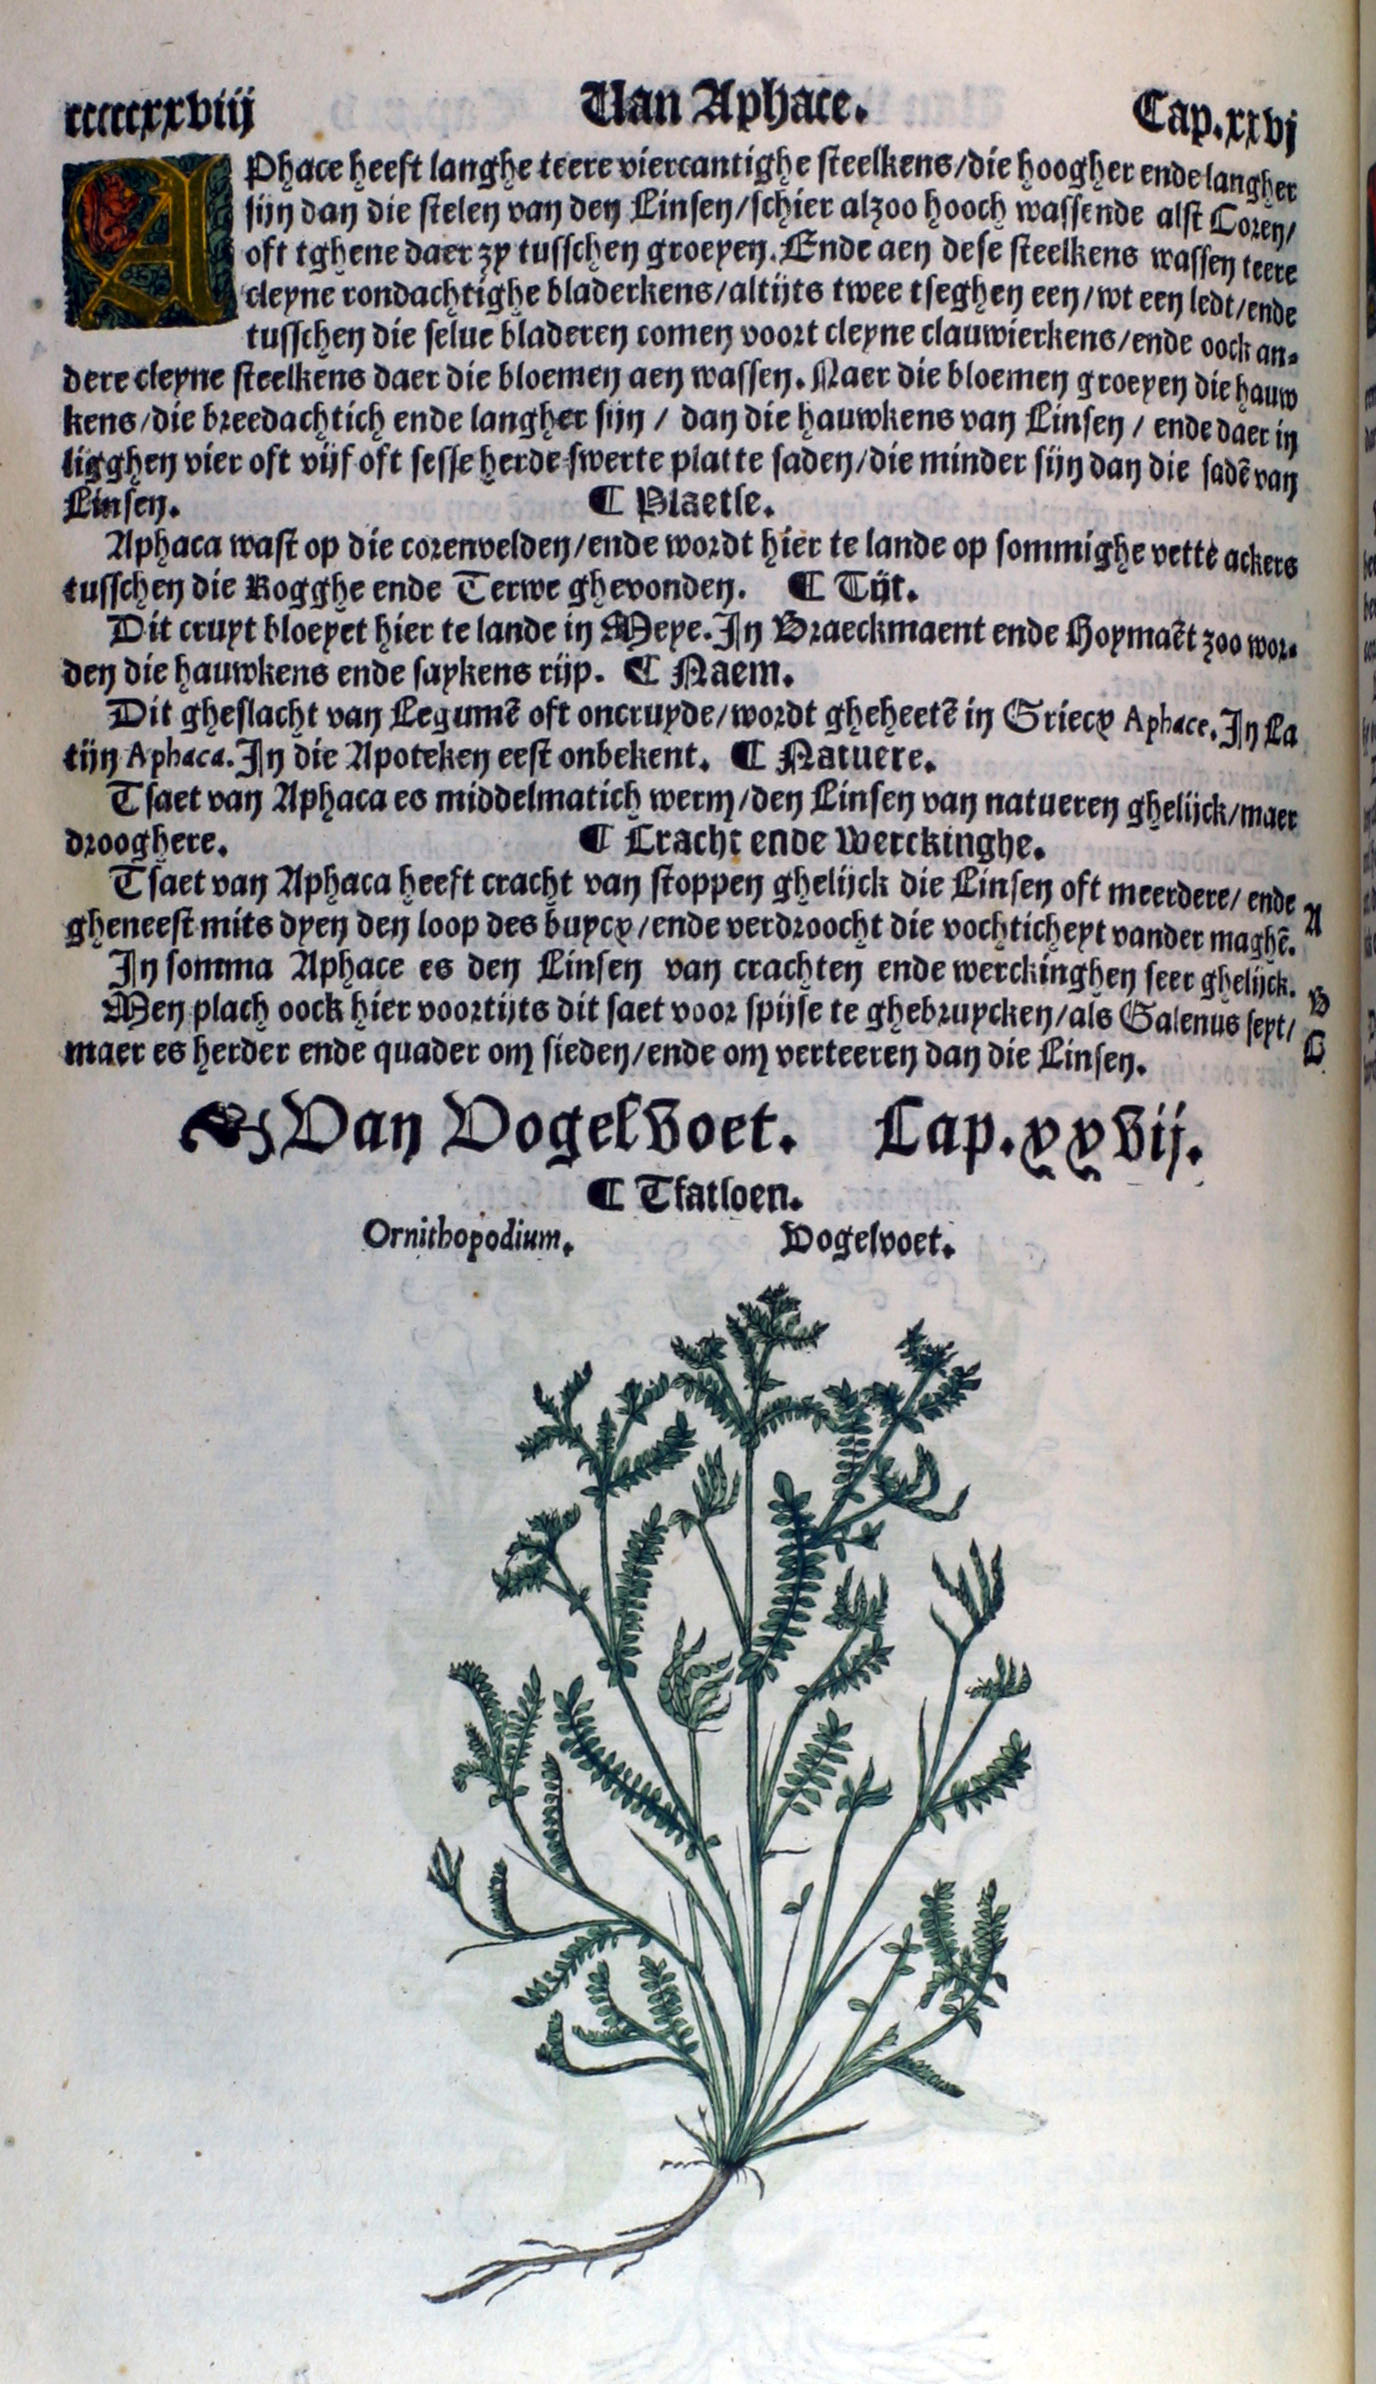 cccccxxviij Van Aphace. Cap.xxvj
APhace heeft langhe teere viercantighe steelkens/die hoogher ende langher
sijn dan die stelen van den Linsen/schier alzoo hooch wassende alst Coren/
oft tghene daer zy tusschen groeyen. Ende aen dese steelkens wassen teere
cleyne rondachtighe bladerkens/altijts twee tseghen een/wt een ledt/ende
tusschen die selue bladeren comen voort cleyne clauwierkens/ende oock an-
dere cleyne steelkens daer die bloemen aen wassen. Naer die bloemen groeyen die hauw
kens/die breedachtich ende langher sijn / dan die hauwkens van Linsen / ende daer in
ligghen vier oft vijf oft sesse herde swerte platte saden/die minder sijn dan die sadē van
Linsen. ¶ Plaetse.
Aphaca wast op die corenvelden/ende wordt hier te lande op sommighe vette ackers
tusschen die Rogghe ende Terwe ghevonden. ¶ Tijt.
Dit cruyt bloeyet hier te lande in Meye. In Braeckmaent ende Hoymaēt zoo wor-
den die hauwkens ende saykens rijp. ¶ Naem.
Dit gheslacht van Legumē oft oncruyde/wordt gheheetē in Griecx Aphace. In La
tijn Aphaca. In die Apoteken eest onbekent. ¶ Natuere.
Tsaet van Aphaca es middelmatich werm/den Linsen van natueren ghelijck/maer
drooghere. ¶ Cracht ende Werckinghe.
Tsaet van Aphaca heeft cracht van stoppen ghelijck die Linsen oft meerdere/ ende A
gheneest mits dyen den loop des buycx/ende verdroocht die vochticheyt vander maghē.
In somma Aphace es den Linsen van crachten ende werckinghen seer ghelijck. B
Men plach oock hier voortijts dit saet voor spijse te ghebruycken/als Galenus seyt/ C
maer es herder ende quader om sieden/ende om verteeren dan die Linsen.
Van Vogelvoet. Cap.xxvij.
¶ Tfatsoen.
Ornithopodium. Vogelvoet.